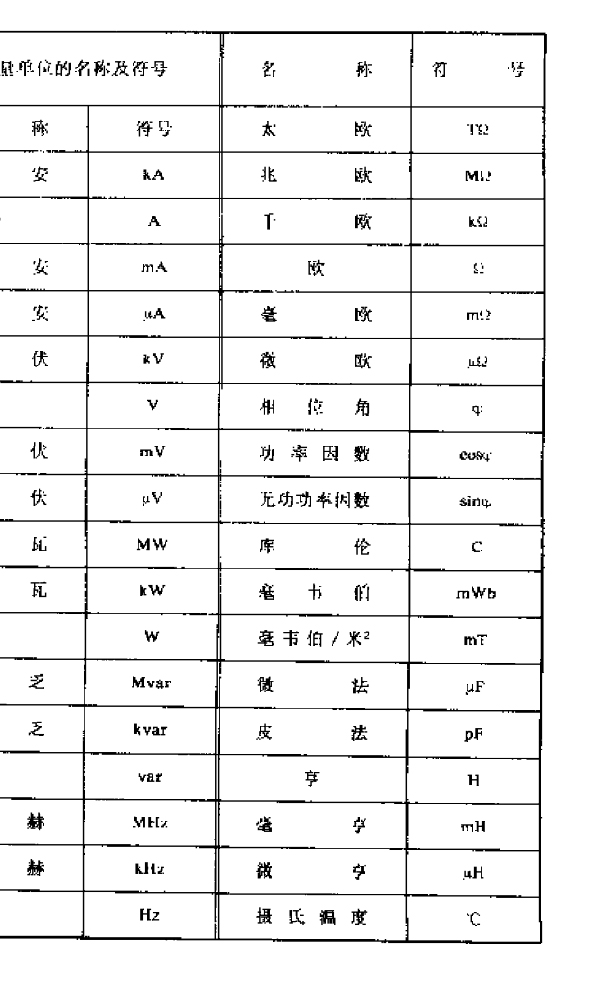 量单位的名称及符号 名 称 符 号
称 符号 太 欧 TΩ
安 kA 兆 欧 MΩ
A 千 欧 kΩ
安 mA 欧 Ω
安 μA 毫 欧 mΩ
伏 kV 微 欧 μΩ
V 相 位 角 φ
伏 mV 功 率 因 数 cosφ
伏 μV 无功功率因数 sinφ
瓦 MW 库 伦 C
瓦 kW 毫 韦 伯 mWb
W 毫 韦 伯 / 米² mT
乏 Mvar 微 法 μF
乏 kvar 皮 法 pF
var 亨 H
赫 MHz 毫 亨 mH
赫 kHz 微 亨 μH
Hz 摄 氏 温 度 ℃